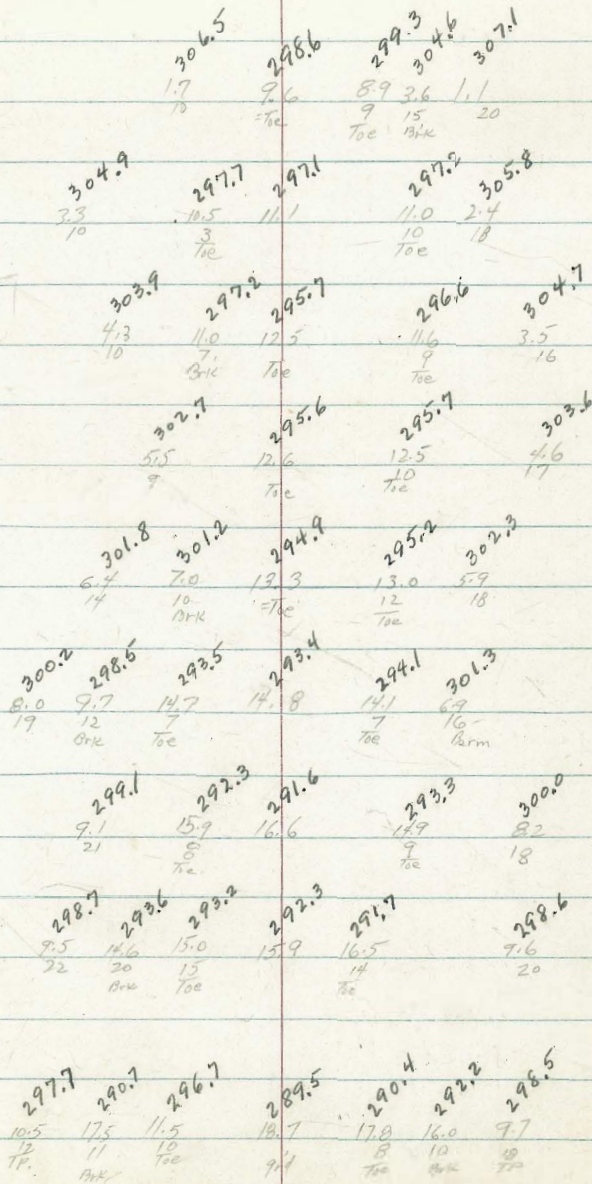 306.5 298.6 299.3 304.6 307.1
1.7 9.6 8.9 3.6 1.1
10 =Toe 9 15 20
Toe Brk
304.9 297.7 297.1 297.2 305.8
3.3 10.5 11.1 11.0 2.4
10 3 10 18
Toe Toe
303.9 297.2 295.7 296.6 304.7
4.3 11.0 12.5 11.6 3.5
10 7 9 16
Brk Toe Toe
302.7 295.6 295.7 303.6
5.5 12.6 12.5 4.6
9 10 17
Toe Toe
301.8 301.2 294.9 295.2 302.3
6.4 7.0 13.3 13.0 5.9
14 10 =Toe 12 18
Brk Toe
300.2 298.5 293.5 293.4 294.1 301.3
8.0 9.7 14.7 14.8 14.1 6.9
19 12 7 7 16
Brk Toe Toe Berm
299.1 292.3 291.6 293.3 300.0
9.1 15.9 16.6 14.9 8.2
21 8 9 18
Toe Toe
298.7 293.6 293.2 292.3 291.7 298.6
9.5 14.6 15.0 15.9 16.5 9.6
22 20 15 14 20
Brk Toe Toe
297.7 290.7 296.7 289.5 290.4 292.2 298.5
10.5 17.5 11.5 18.7 17.8 16.0 9.7
12 11 10 8 10 18
TP. Brk Toe Toe Brk TP